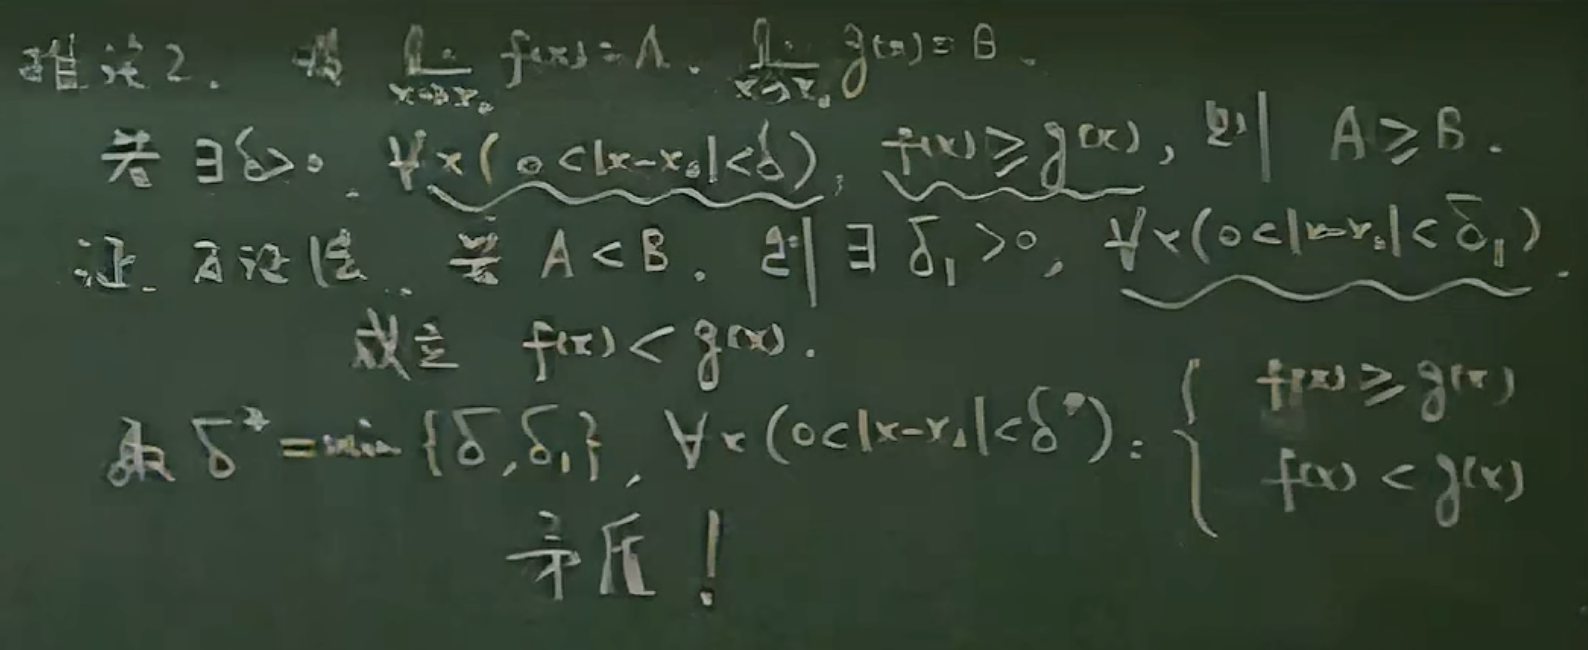 推论2. 设 lim_{x→x₀} f(x)=A, lim_{x→x₀} g(x)=B.
若 ∃δ>0, ∀x(0<|x-x₀|<δ), f(x)≥g(x), 则 A≥B.
证. 反证法. 若 A<B, 则 ∃ δ₁>0, ∀x(0<|x-x₀|<δ₁).
成立 f(x)<g(x).
取 δ*=min{δ,δ₁}, ∀x(0<|x-x₀|<δ*): { f(x)≥g(x)
f(x)<g(x)
矛盾!